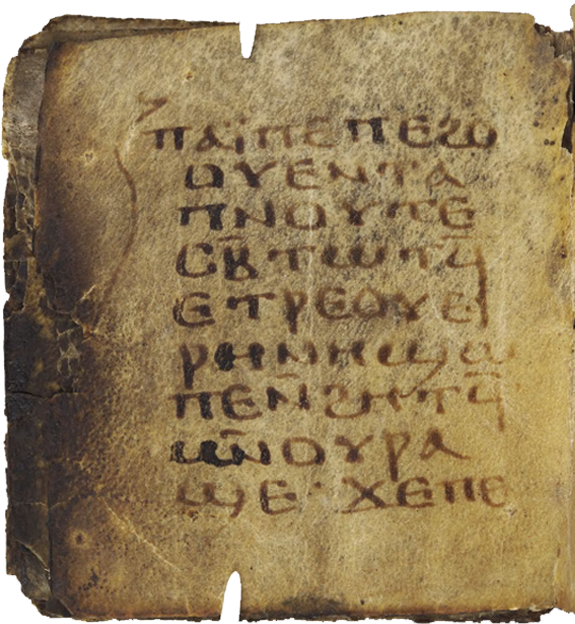 ⲡⲁⲓ̈ⲡⲉⲡⲉϩⲟ
ⲟⲩⲉⲛⲧⲁ
ⲡⲛⲟⲩⲧⲉ
ⲥⲃ̅ⲧⲱⲧϥ̅
ⲉⲧⲣⲉⲟⲩⲉⲓ
ⲣⲏⲛⲏϣⲱ
ⲡⲉⲛ̅ϩⲏⲧϥ̅
ⲙⲛ̅ⲟⲩⲣⲁ
ϣⲉ·ϫⲉⲡⲉ